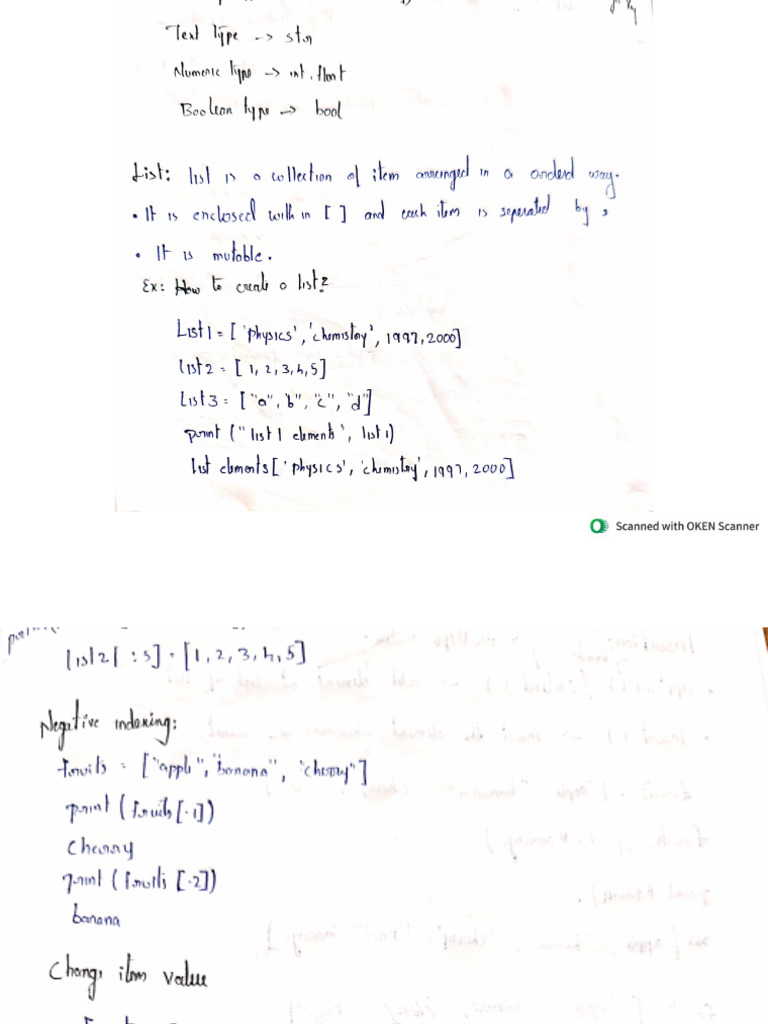 Text type -> str
Numeric type -> int, float
Boolean type -> bool
List: list is a collection of item arranged in a orderd way.
• It is enclosed with in [ ] and each item is seperated by ,
• It is mutable.
Ex: How to create a list?
List1 = ['physics', 'chemistry', 1997, 2000]
list2 = [1, 2, 3, 4, 5]
List3 = ["a", "b", "c", "d"]
print ("list1 elements", list1)
list elements ['physics', 'chemistry', 1997, 2000]
Scanned with OKEN Scanner
list2[ :5] = [1, 2, 3, 4, 5]
Negative indexing:
fruits = ["apple", "banana", "cherry"]
print (fruits[-1])
Cherry
print (fruits [-2])
banana
Change item value